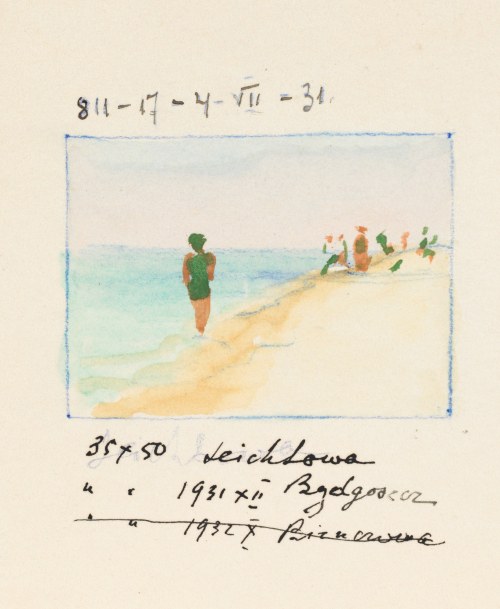 811 - 17 - 4 - VII - 31.
35 x 50 Leichtowa
" " 1931 XII Bydgoszcz
" " 1932 X